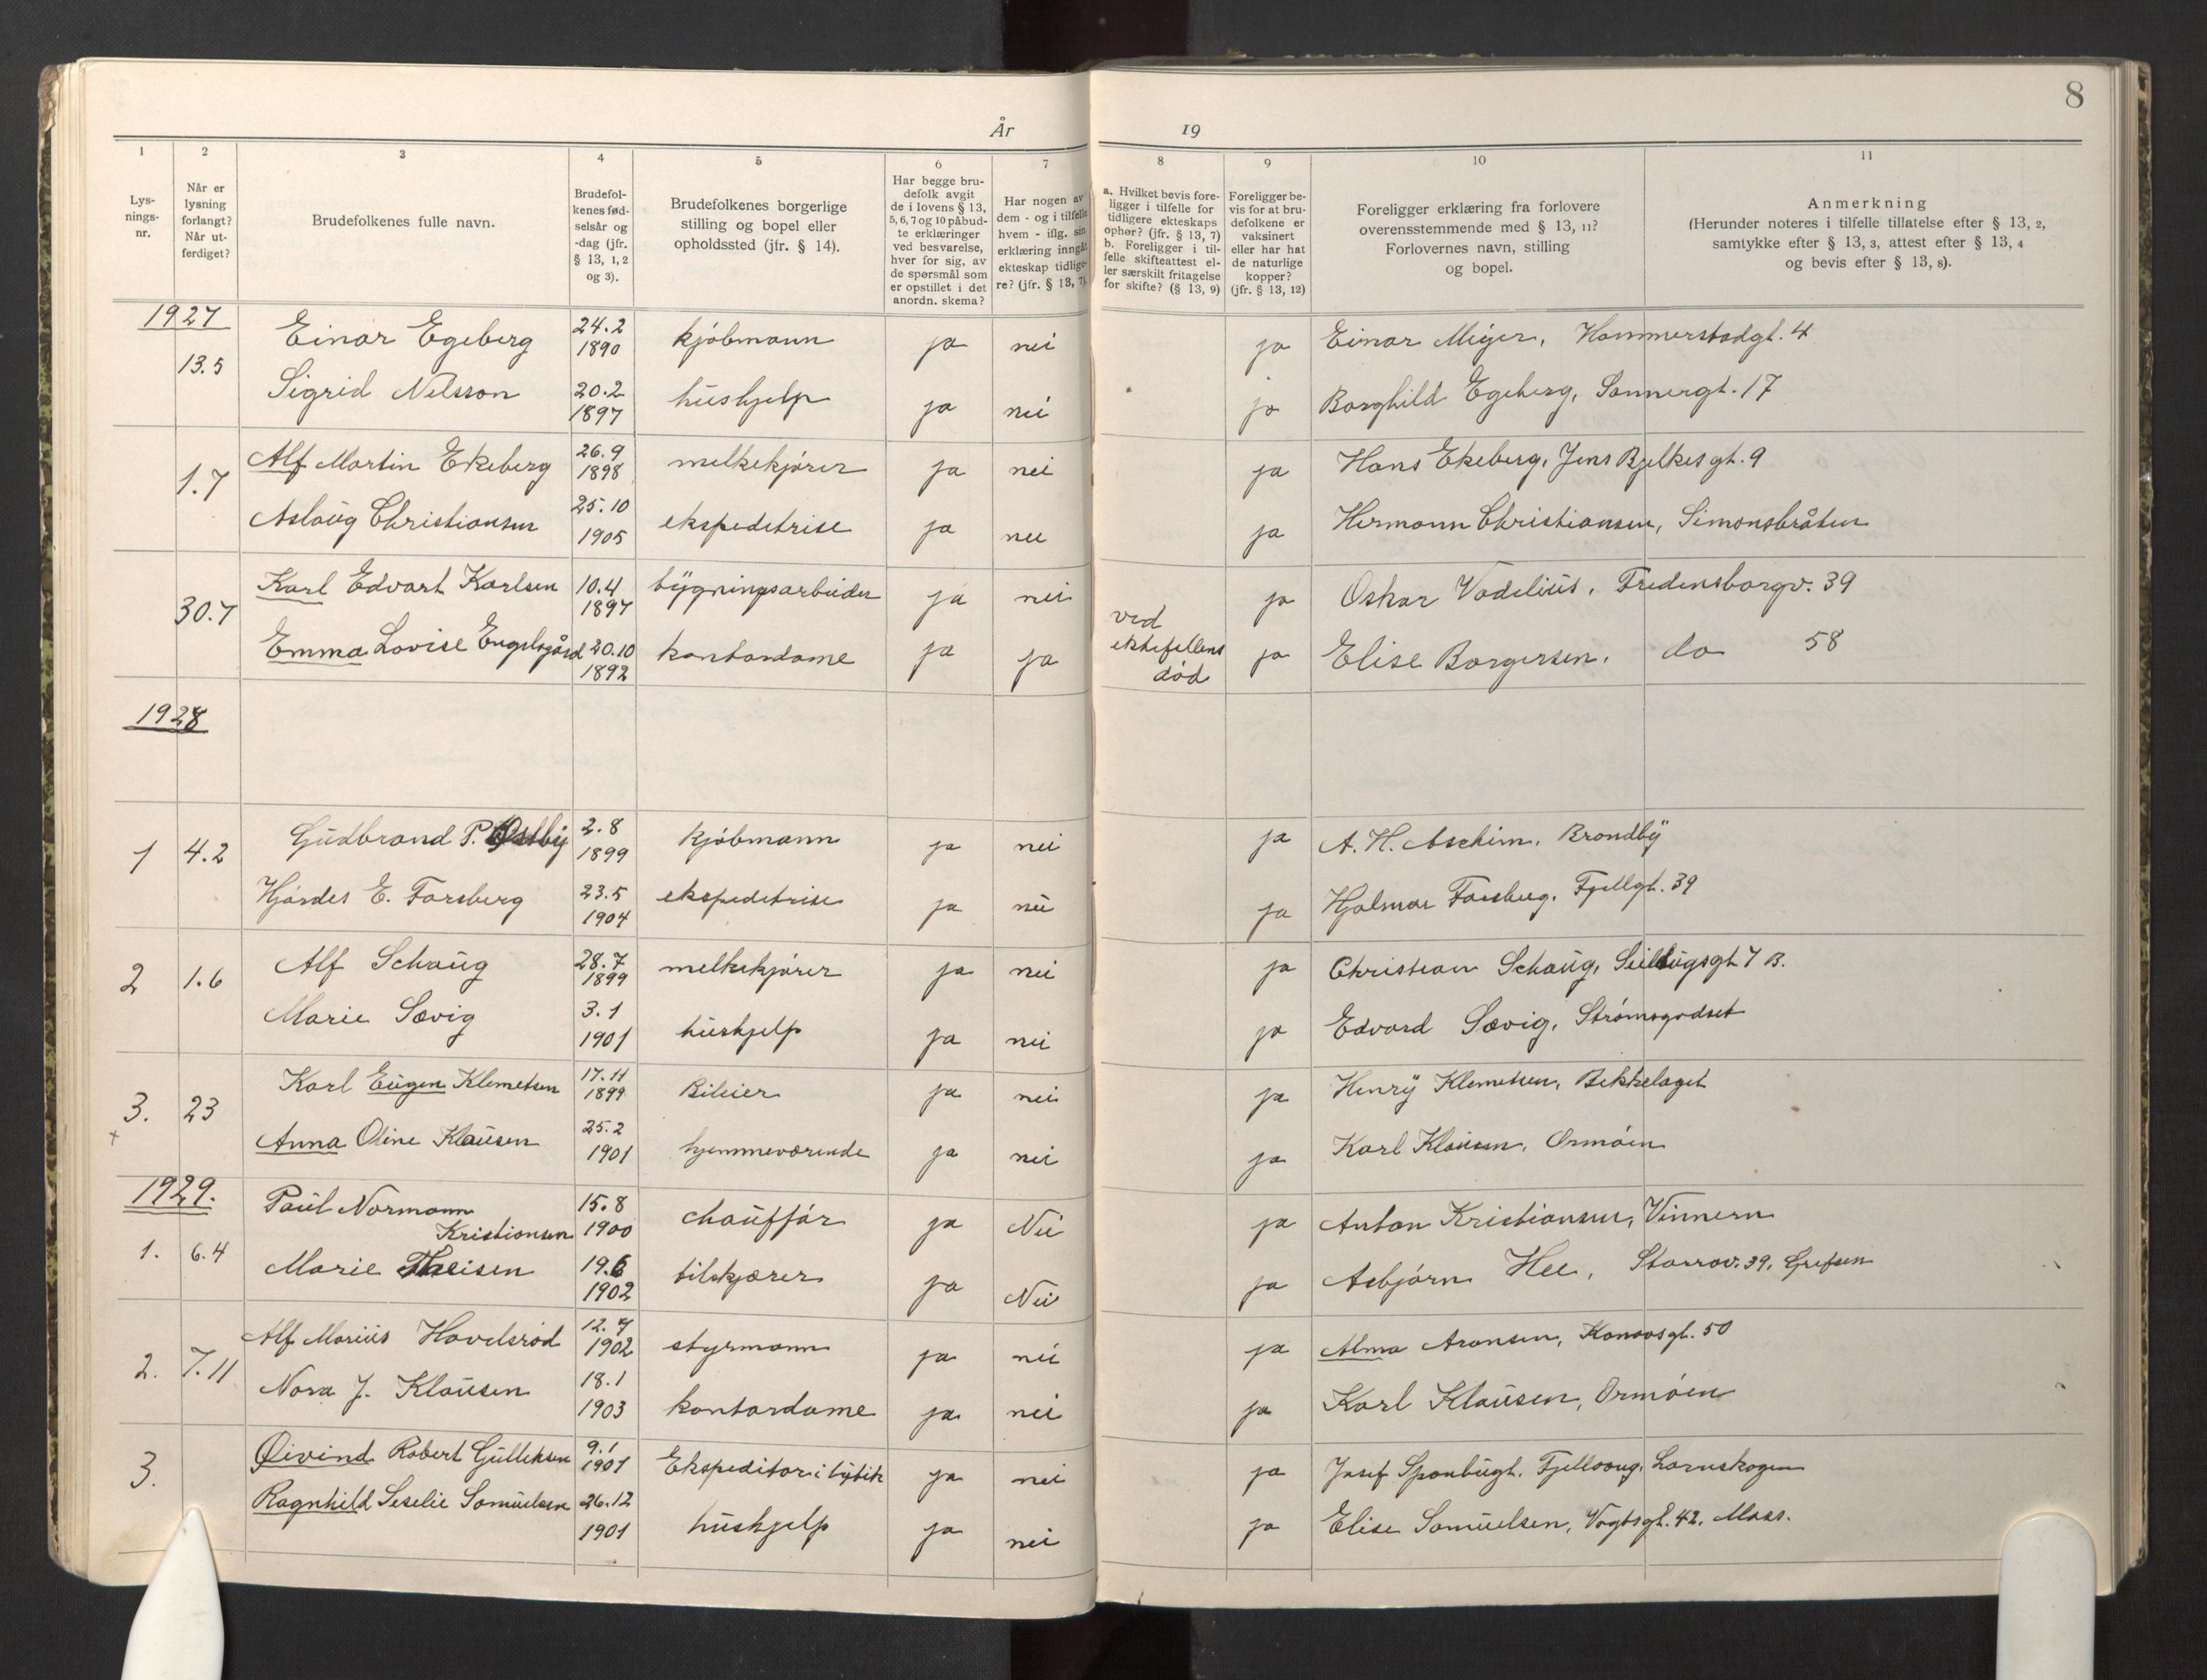 8
År 19
1 2 3 4 5 6 7 8 9 10 11
Lys-
nings-
nr.
Når er
lysning
forlangt?
Når ut-
ferdiget?
Brudefolkenes fulle navn.
Brudefol-
kenes fød-
selsår og
-dag (jfr.
§ 13, 1, 2
og 3).
Brudefolkenes borgerlige
stilling og bopel eller
opholdssted (jfr. § 14).
Har begge bru-
defolk avgit
de i lovens § 13,
5, 6, 7 og 10 påbud-
te erklæringer
ved besvarelse,
hver for sig, av
de spørsmål som
er opstillet i det
anordn. skema?
Har nogen av
dem - og i tilfelle
hvem - iflg. sin
erklæring inngått
ekteskap tidlige-
re? (jfr. § 13, 7).
a. Hvilket bevis fore-
ligger i tilfelle for
tidligere ekteskaps
ophør? (jfr. § 13, 7)
b. Foreligger i til-
felle skifteattest el-
ler særskilt fritagelse
for skifte? (§ 13, 9)
Foreligger be-
vis for at bru-
defolkene er
vaksinert
eller har hat
de naturlige
kopper?
(jfr. § 13, 12)
Foreligger erklæring fra forlovere
overensstemmende med § 13, 11?
Forlovernes navn, stilling
og bopel.
Anmerkning
(Herunder noteres i tilfelle tillatelse efter § 13, 2,
samtykke efter § 13, 3, attest efter § 13, 4
og bevis efter § 13, 8).
1927
13.5 Einar Egeberg 24.2 1890 kjøbmann ja nei ja Einar Meyer, Hammerstadgt. 4
Sigrid Nelsson 20.2 1897 hushjelp ja nei ja Borghild Egeberg, Sannergt. 17
1.7 Alf Martin Ekeberg 26.9 1898 melkekjører ja nei ja Hans Ekeberg, Jens Bjelkesgt. 9
Aslaug Christiansen 25.10 1905 ekspedetrise ja nei ja Hermann Christiansen, Simonsbråten
30.7 Karl Edvart Karlsen 10.4 1897 bygningsarbeider ja nei ja Oskar Vadelius, Fredensborgv. 39
Emma Lovise Engelsgård 20.10 1892 kontordame ja ja ved ektefellens død ja Elise Borgersen, do 58
1928
1 4.2 Gudbrand P. Østby 2.8 1899 kjøbmann ja nei ja A. H. Aschim, Brandby
Hjørdes E. Forsberg 23.5 1904 ekspedetrise ja nei ja Hjalmar Forsberg, Fjellgt. 39
2 1.6 Alf Schaug 28.7 1899 melkekjører ja nei ja Christian Schaug, 7 B.
Marie Sævig 3.1 1901 hushjelp ja nei ja Edvard Sævig, Strømsgodset
3. 23 Karl Eugen Klemetsen 17.11 1899 Bileier ja nei ja Henry Klemetsen, Bekkelaget
+ Anna Oline Klausen 25.2 1901 hjemmeværende ja nei ja Karl Klausen, Ormøen
1929.
1. 6.4 Paul Normann
Kristiansen 15.8 1900 chauffør ja Nei ja Anton Kristiansen, Vinnern
Marie Theisen 19.6 1902 tilskjærer ja Nei ja Asbjørn Hee, Storrov. 39, Grefsen
2. 7.11 Alf Marius Havelsrød 12.7 1902 styrmann ja nei ja Alma Aronsen, Kanvasgt. 50
Nora J. Klausen 18.1 1903 kontordame ja nei ja Karl Klausen, Ormøen
3. Øivind Robert Gulleksen 9.1 1901 Ekspeditør i bybutik ja nei ja Josef Fjellvang, Lørnskogen
Ragnhild Seselie Samuelsen 26.12 1901 hushjelp ja nei ja Elise Samuelsen, Vogtsgt. 42, Moss.